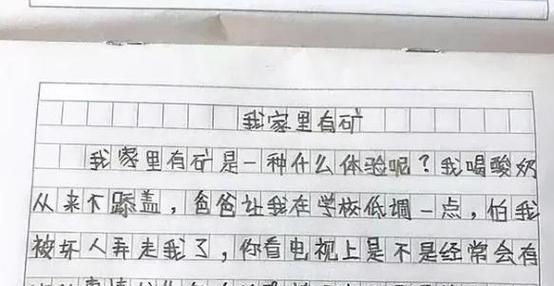 我家里有矿
我家里有矿是一种什么体验呢？我喝酸奶
从来不舔盖，爸爸让我在学校低调一点，怕我
被坏人弄走我了，你看电视上是不是经常会有